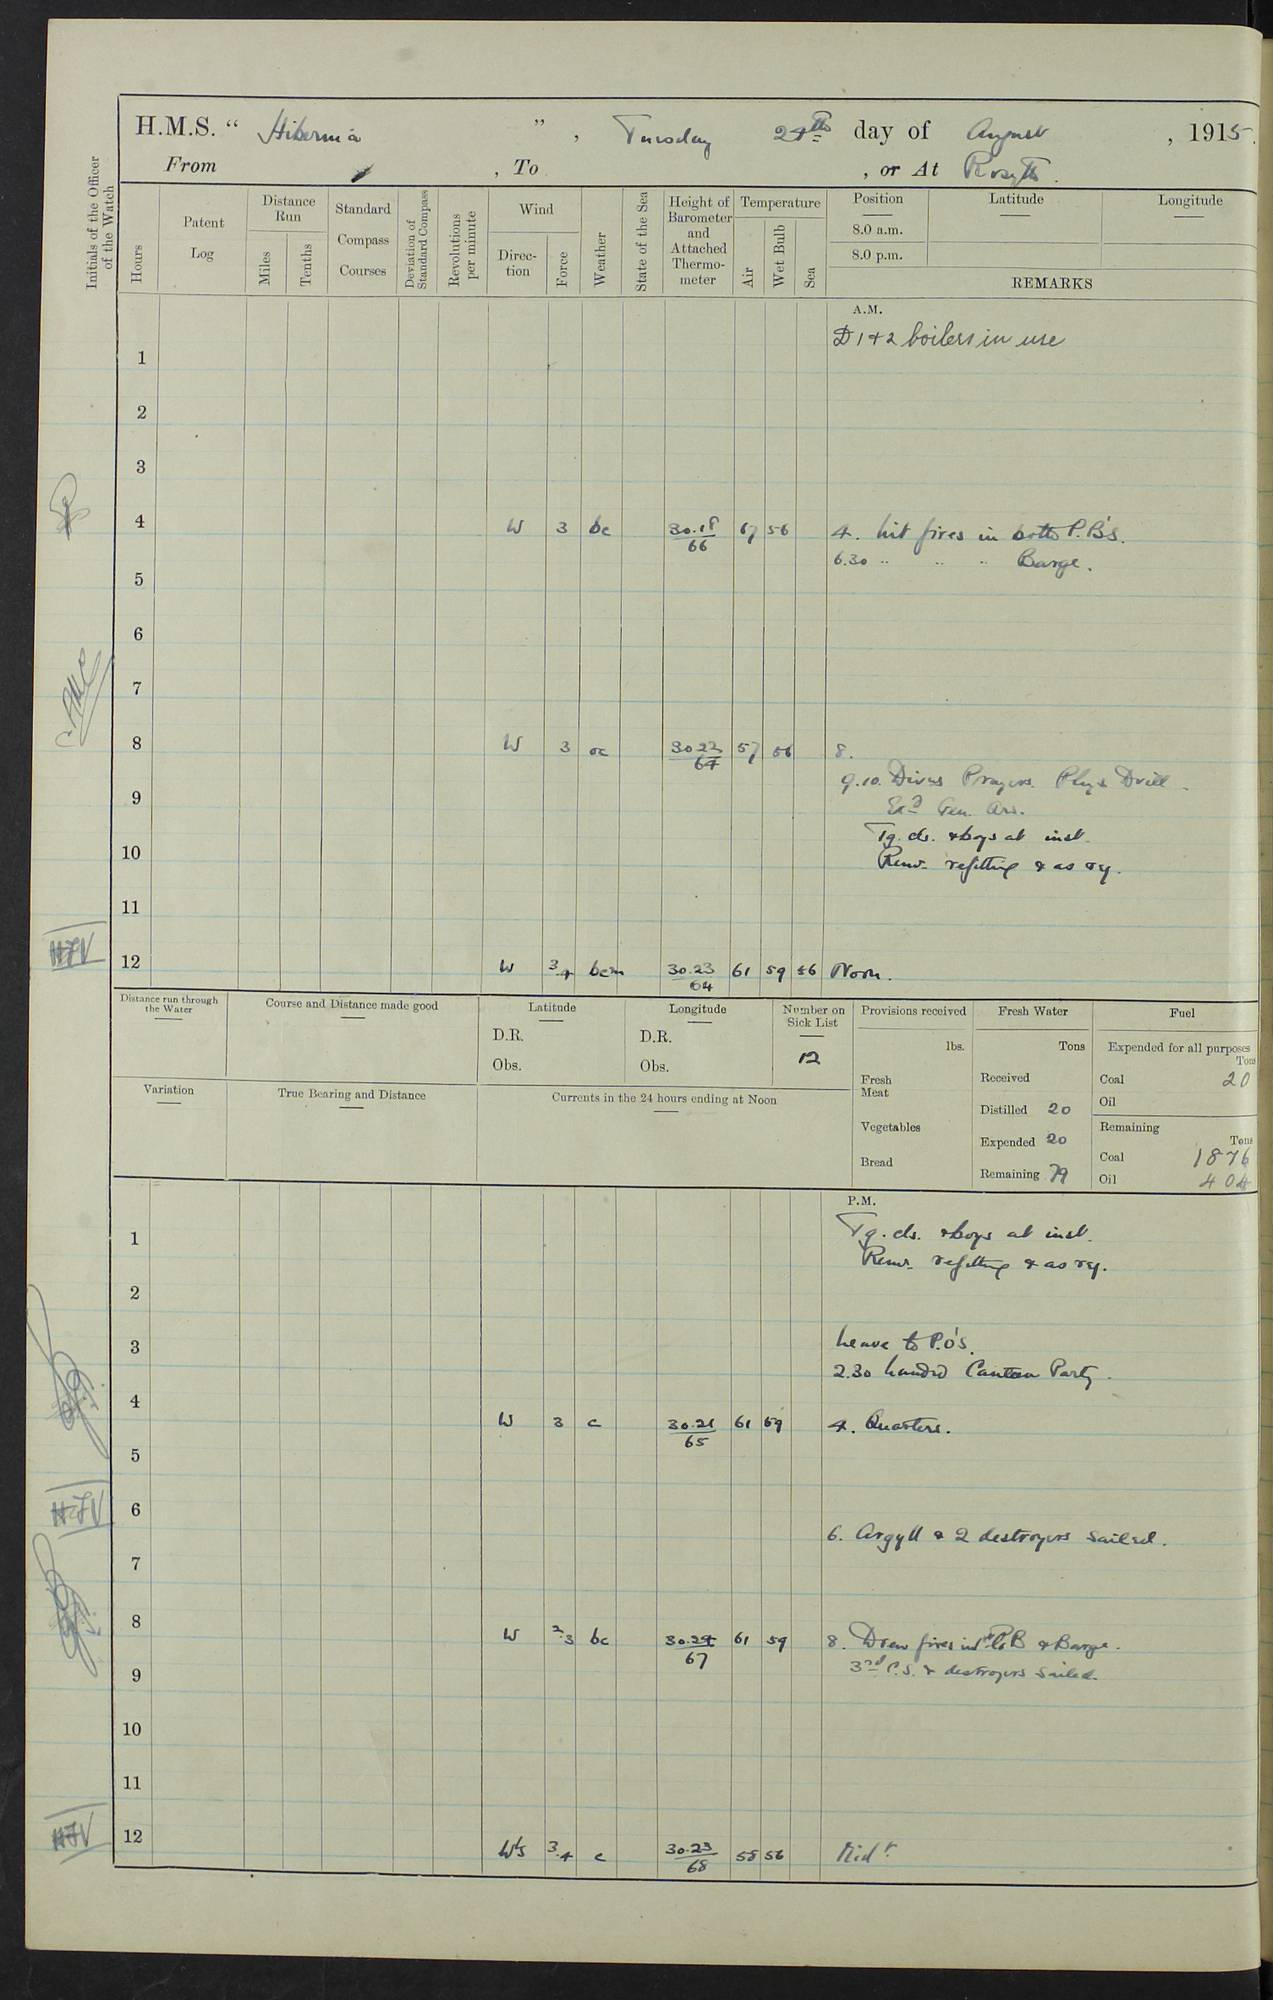 H.M.S. “ Hibernia ” , Tuesday 24th day of August , 1915.
From , To , or At Rosyth.
Initials of the Officer of the Watch
Hours
Patent Log
Distance Run
Miles
Tenths
Standard Compass Courses
Deviation of Standard Compass
Revolutions per minute
Wind
Direction
Force
Weather
State of the Sea
Height of Barometer and Attached Thermometer
Temperature
Air
Wet Bulb
Sea
Position
8.0 a.m.
8.0 p.m.
Latitude
Longitude
REMARKS
A.M.
D 1 + 2 boilers in use
1
2
3
4 W 3 bc 30.18/66 56 4. lit fires in both P.B's.
6.30 " " " Barge.
5
6
7
8 W 3 oc 30 23/64 57 56 8.
9.10. Divns Prayers. Phys Drill.
9 Exd Gen. Qrs.
Tg. cls. & boys at inst.
10 Remr. refitting & as rq.
11
H.F.V
12 W 3.4 bcm 30.23/64 61 59 56 Noon.
Distance run through the Water
Course and Distance made good
Latitude
D.R.
Obs.
Longitude
D.R.
Obs.
Number on Sick List
12
Provisions received
lbs.
Fresh Meat
Vegetables
Bread
Fresh Water
Tons
Received
Distilled 20
Expended 20
Remaining 79
Fuel
Expended for all purposes
Tons
Coal 20
Oil
Remaining
Tons
Coal 1876
Oil 404
Variation
True Bearing and Distance
Currents in the 24 hours ending at Noon
P.M.
1 Tg. cls. & boys at inst.
Remr. refitting & as rq.
2
3 Leave to P.O's.
2.30 landed Canteen Party.
4 W 3 c 30.21/65 61 59 4. Quarters.
5
H.F.V
6
6. Argyll & 2 destroyers sailed.
7
8 W 2.3 bc 30.24/67 61 59 8. Drew fires in P.B & Barge.
9 3rd C.S. & destroyers sailed.
10
11
H.F.V
12 W'S 3.4 c 30.23/68 58 56 Midt